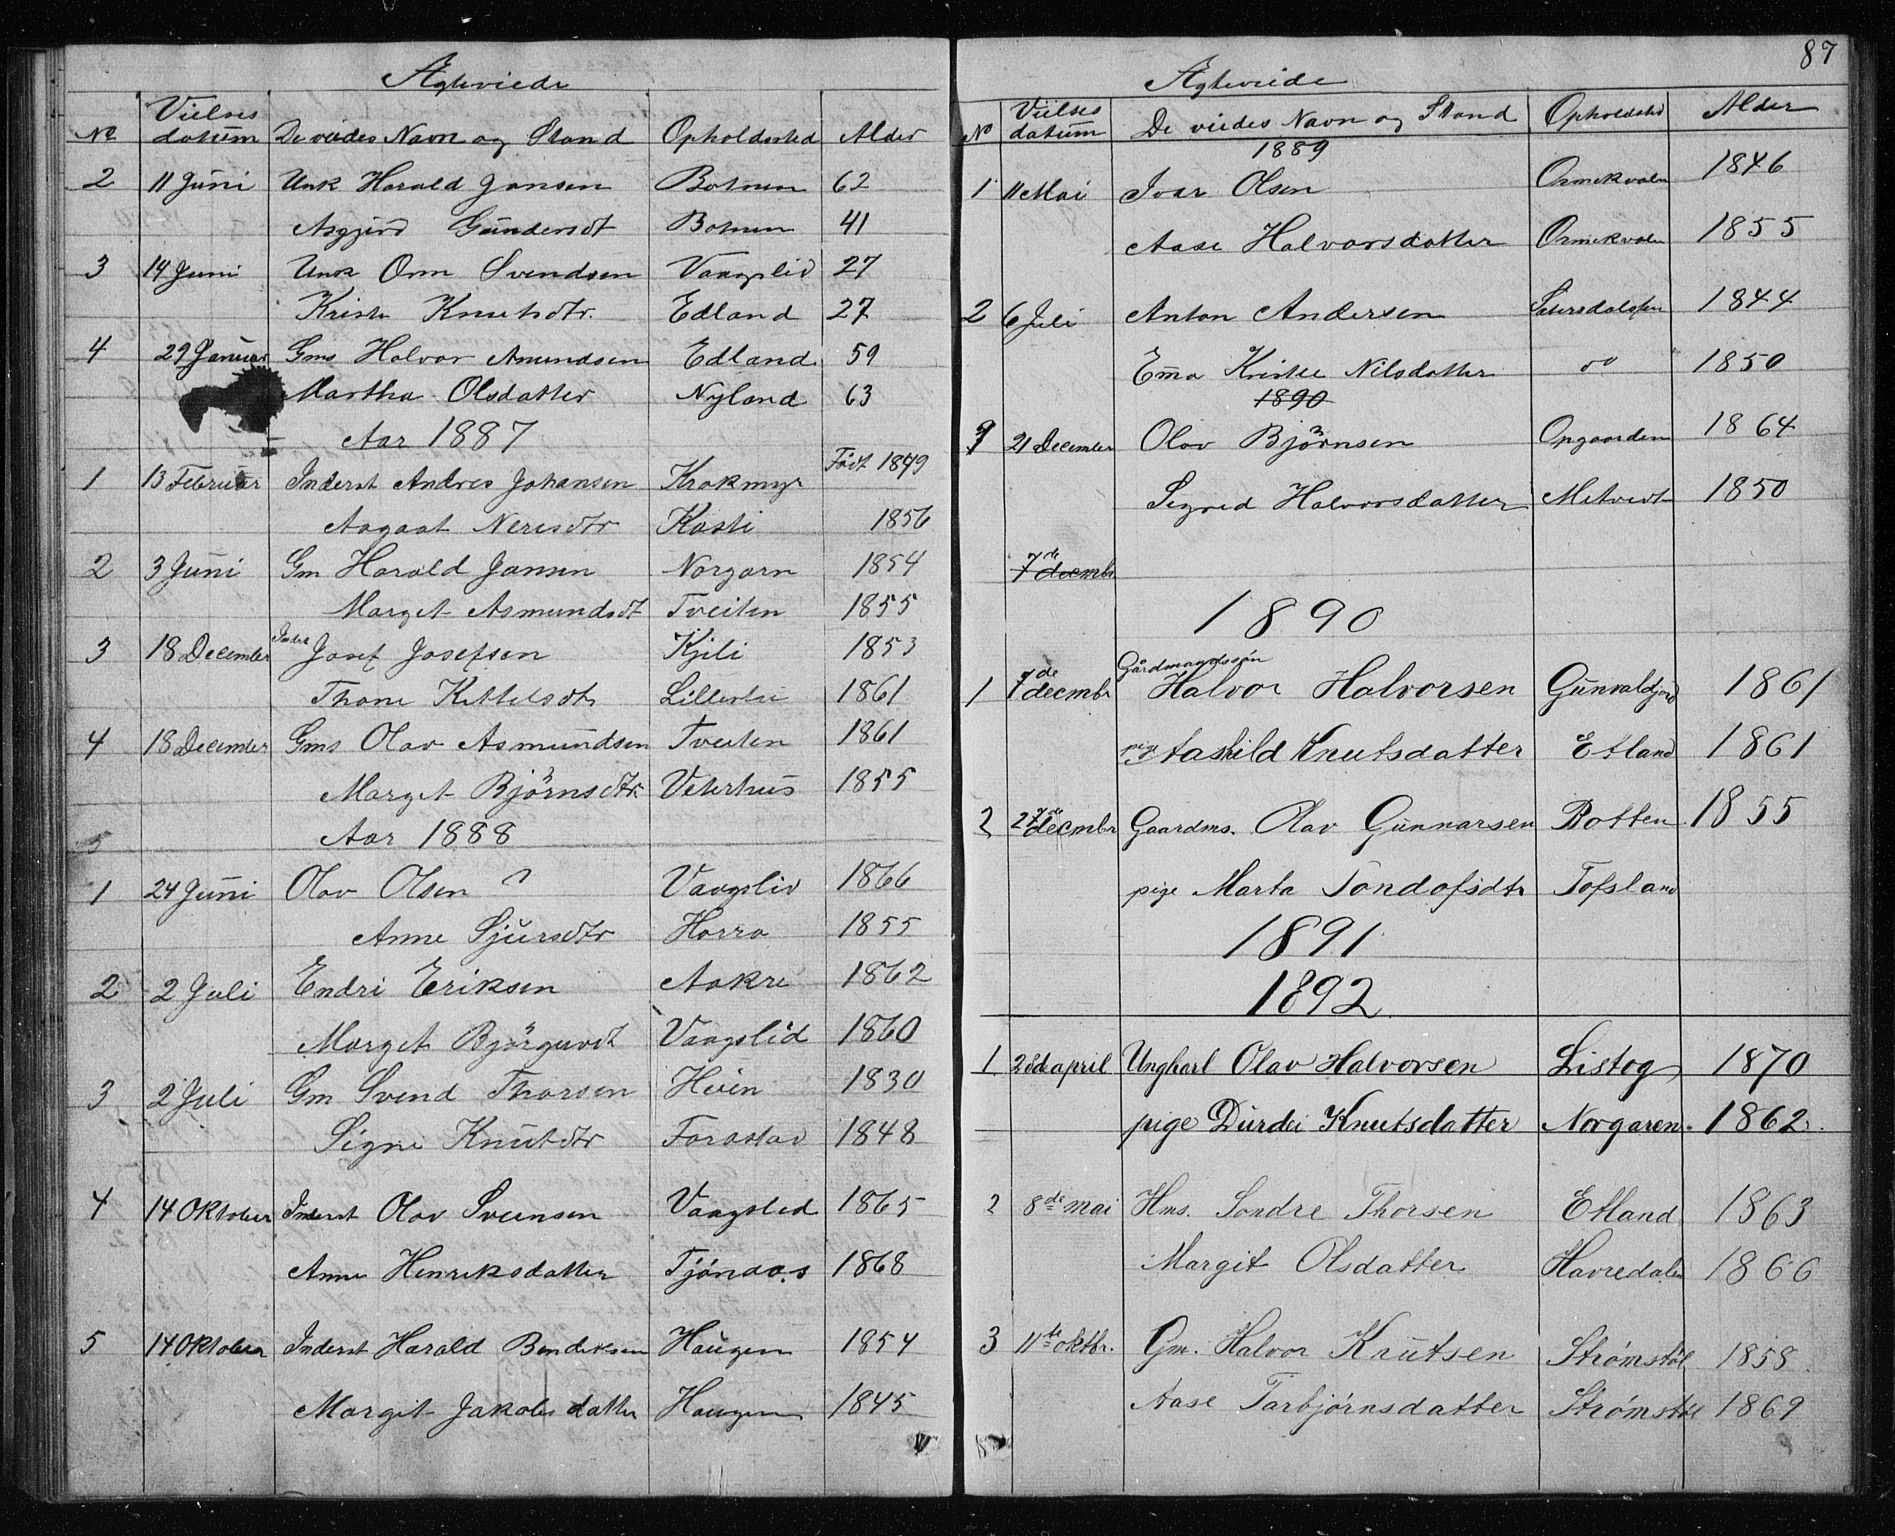 Ægteviede
No Vielses datum De viedes Navn og Stand Opholdssted Alder
2 11 Juni Unk Harald Jansen Botnen 62
Asgjerd Gundersdt Botnen 41
3 14 Juni Unk Orm Svendsen Vaagslid 27
Kriste Knutsdtr. Edland 27
4 29 Januar Gms Halvor Amundsen Edland 59
Martha Olsdatter Nyland 63
Aar 1887
1 13 Februar Inderst Andres Johansen Krakmyr Født 1849
Aagaat Nerisdtr Kasti 1856
2 3 Juni Gm Harald Jansen Norgarn 1854
Marget Asmundsdt Tveiten 1855
3 18 December Inds Josef Josefsen Kjili 1853
Thone Kittelsdtr 1861
4 18 December Gms Olav Asmundsen Tveiten 1861
Marget Bjørnsdtr. Veterhus 1855
5 Aar 1888
1 24 Juni Olav Olsen ? Vaagslid 1866
Anne Sjursdtr Horra 1855
2 2 Juli Endri Eriksen Aakre 1862
Marget Bjørguvdt Vaagslid 1860
3 2 Juli Gm Svend Thorsen Hein 1830
Signe Knutdtr Farastad 1848
4 14 Oktober Inderst Olav Sveinsen Vaagslid 1865
Anne Henriksdatter Tjønaas 1868
5 14 Oktober Inderst Harald Bendiksen Haugen 1854
Margit Jakobsdatter Haugen 1845
87
Ægteviede
No Vielses datum De viedes Navn og Stand Opholdsted Alder
1889
1 11 Mai Ivar Olsen 1846
Aase Halvorsdatter 1855
2 6 Juli Anton Andersen 1844
Ema Kristie Nilsdatter do 1850
1890
21 December Olav Bjørnsen Opgaarden 1864
Signed Halvorsdatter Metvedt 1850
7de decmbr
1890
1 7de decmbr Gårdmandssøn Halvor Halvorsen Gunvaldjord 1861
pige Aashild Knutsdatter Etland 1861
2 27de decmbr Gaardms. Olav Gunnarsen Botten 1855
pige Marta Tondofsdtr Tofsland
1891
1892
1 28de april Ungkarl Olav Halvorsen Listog 1870
pige Durdei Knutsdatter Norgaren 1862.
2 8de mai Hms. Sondre Thorsen Etland 1863
Margit Olsdatter Havredalen 1866
3 11te oktbr. Gm. Halvor Knutsen Strømstøl 1858
Aase Tarbjørnsdatter Strømstøl 1869